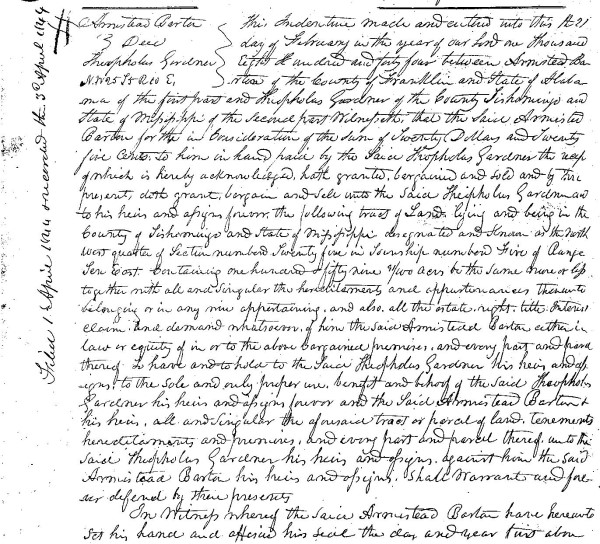 Filed 1st April 1844 & recorded the 3d April 1844
Armistead Barton
To } Deed
Theopholus Gardner
N.W. 25 T5 R10 E,
This Indenture made and entered into this the 21
day of February in the year of our Lord one Thousand
Eight Hundred and forty four between Armistead Ba
rton of the County of Franklin and State of Alaba
ma of the first part and Theopholus Gardner of the County Tishomingo and
State of Mississippi of the Second part Witnesseth, that the Said Armistead
Barton for the in Consideration of the Sum of Twenty Dollars and Twenty
five Cents. to him in hand paid by the Said Theopholus Gardner the recept
of which is hereby acknowledged, hath granted, bargained and sold and by these
present, doth grant, bargain and sell unto the Said Theopholus Gardner and
to his heirs and assigns forever, the following tract of Land, lying and being in the
County of Tishomingo and State of Mississippi designated and Known as the North
West quarter of Section numbered Twenty five in Township numbered Five of Range
Ten East. Containing one hundred & fifty nine acres be the Same more or less
together with all and Singular the hereditaments and appurtenances thereunto
belonging or in any wise appertaining, and also, all the estate, right, title Interest
claim. And demand whatsoever, of him the Said Armistead Barton either in
law or equity of in or to the above bargained premises, and every part and parcel
thereof To have and to hold to the Said Theopholus Gardner his heirs and ass
igns, to the Sole and only proper use, benefit and behoof of the Said Theopholus
Gardner his heirs and assigns forever and the Said Armistead Barton &
his heirs, all and Singular the aforesaid tract or parcel of land, tenements
hereditaments and premises, and every part and parcel thereof, unto the
Said Theopholus Gardner his heirs and assigns, against him the Said
Armistead Barton his heirs and assigns, Shall Warrant and fore
ver defend by these presents
In Witness whereof the Said Armistead Barton have hereunto
Set his hand and affixed his Seal the day and year first above